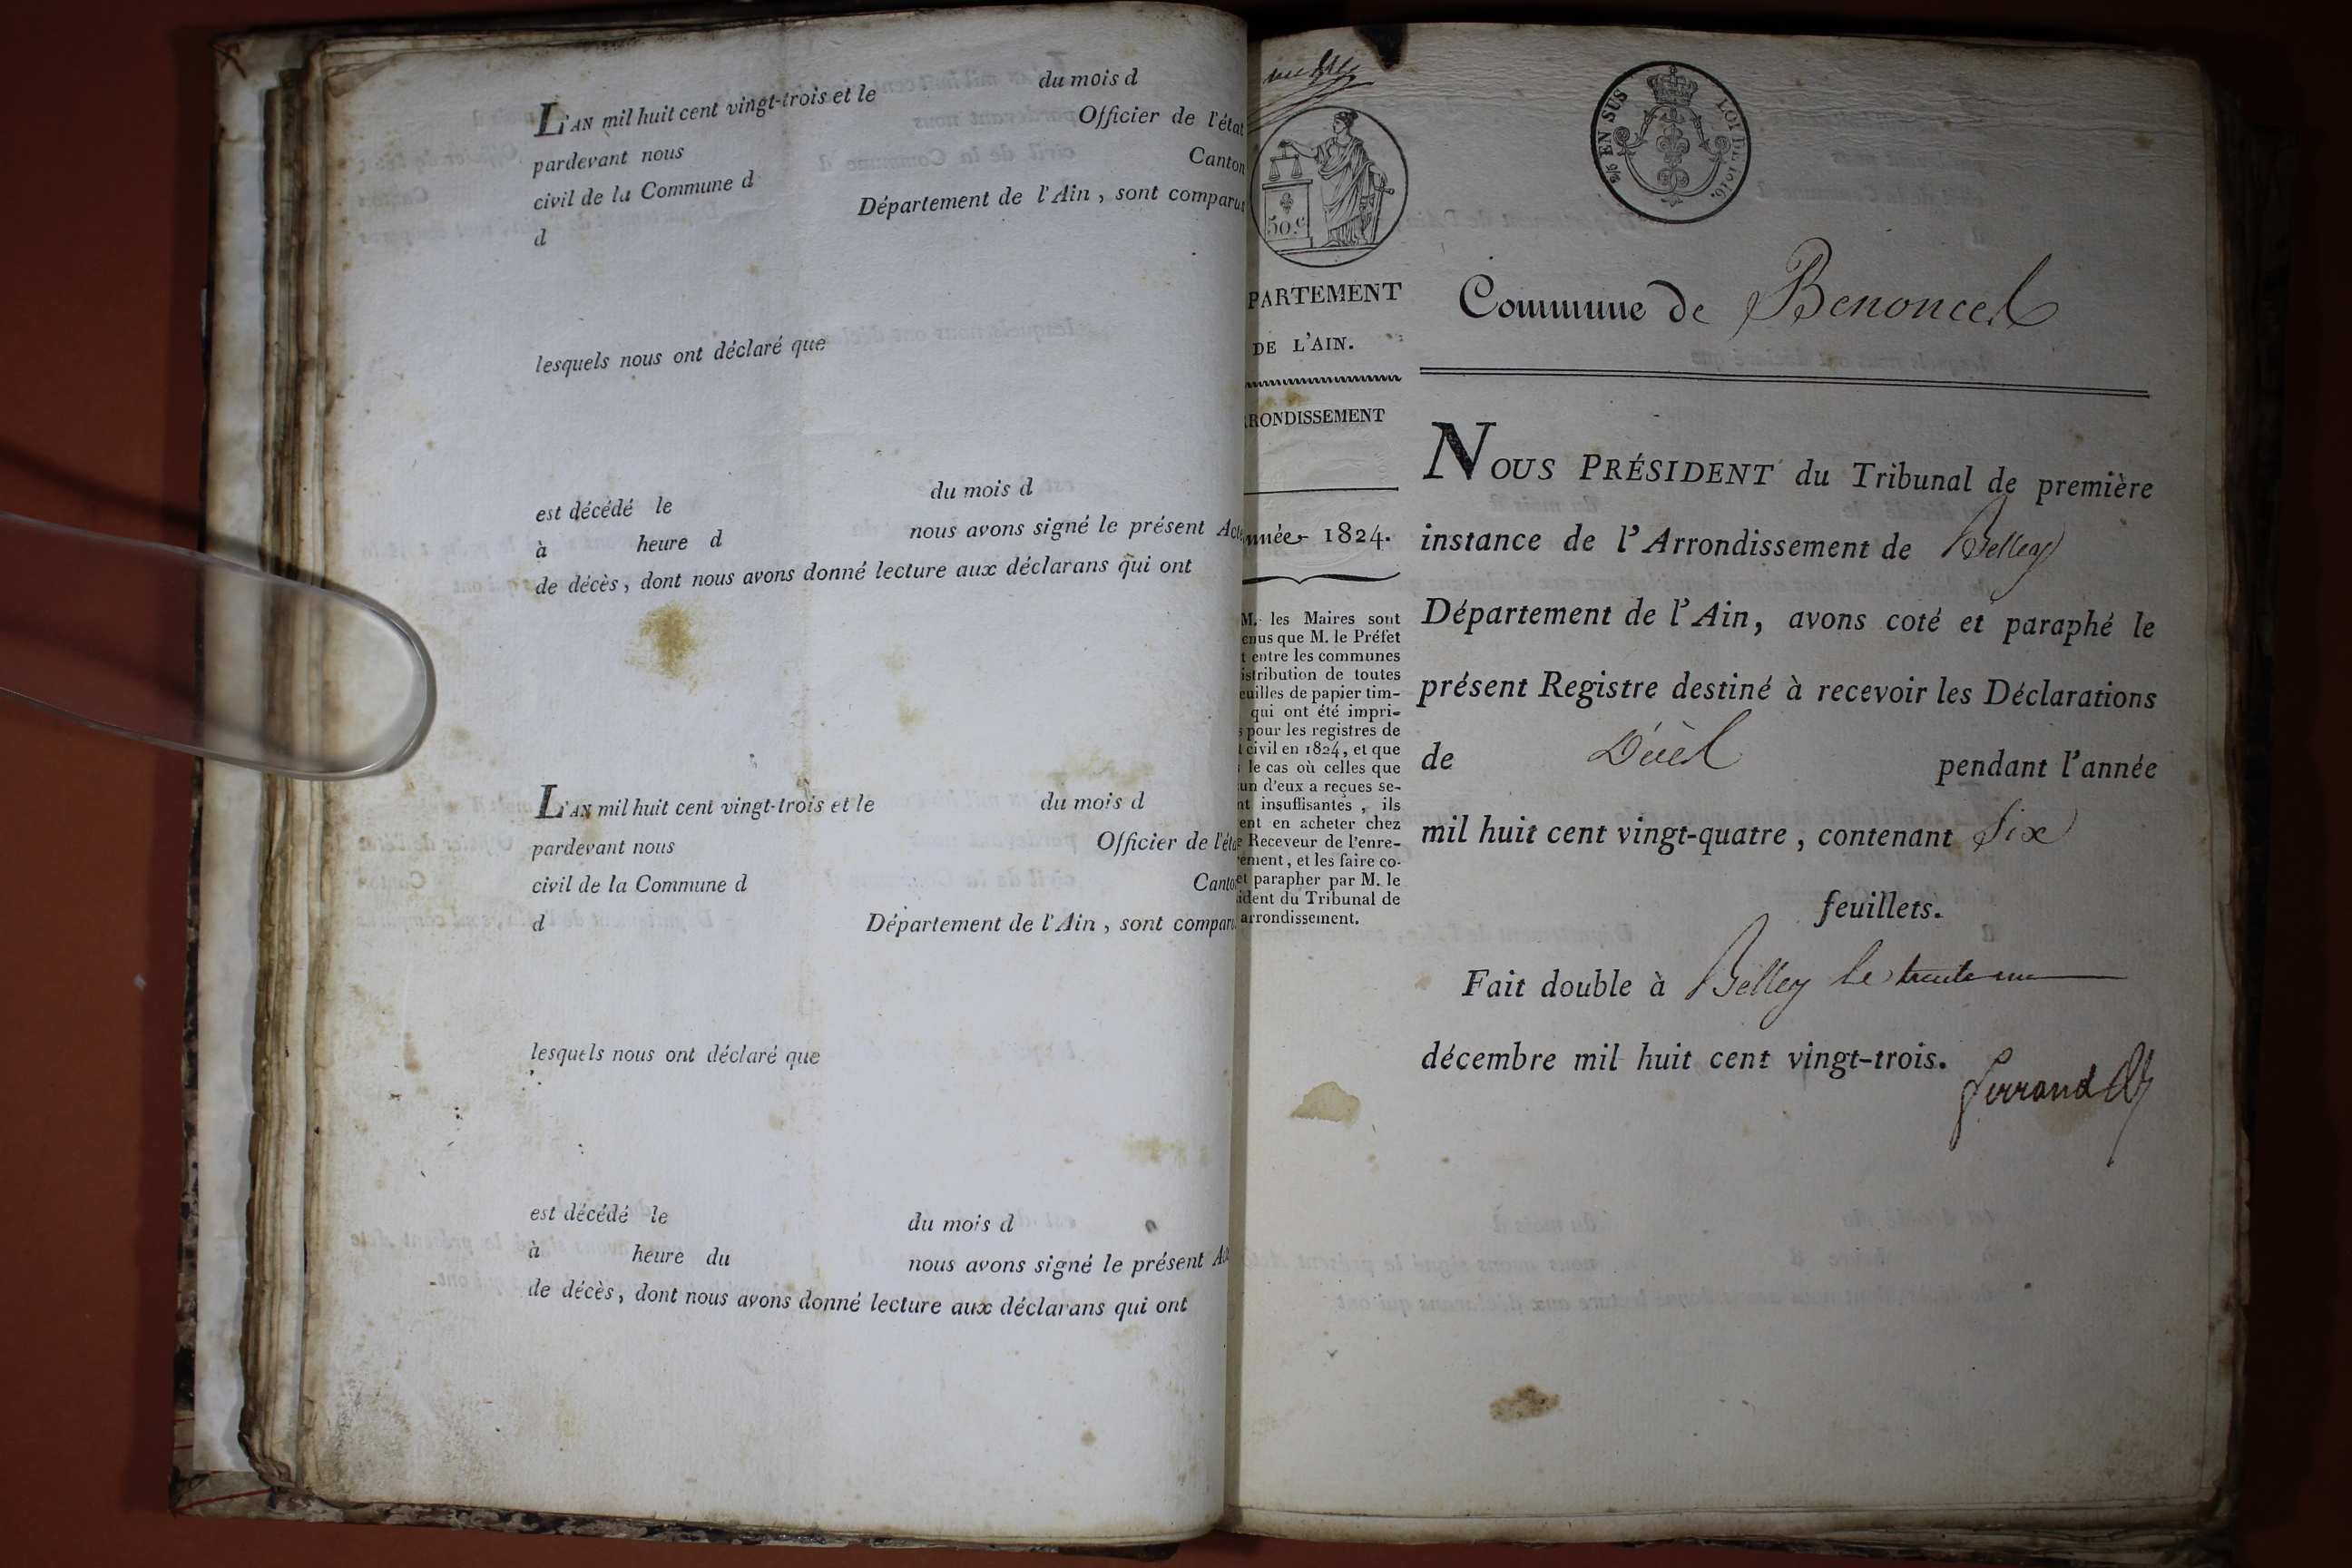 L'AN mil huit cent vingt-trois et le du mois d
pardevant nous Officier de l'état
civil de la Commune d Canton
d Département de l'Ain, sont comparus
lesquels nous ont déclaré que
est décédé le du mois d
à heure d nous avons signé le présent Acte
de décès, dont nous avons donné lecture aux déclarans qui ont
L'AN mil huit cent vingt-trois et le du mois d
pardevant nous Officier de l'éta
civil de la Commune d Canto
d Département de l'Ain, sont compar
lesquels nous ont déclaré que
est décédé le du mois d
à heure du nous avons signé le présent Ac
de décès, dont nous avons donné lecture aux déclarans qui ont
50 c
PARTEMENT
DE L'AIN.
RONDISSEMENT
nnée 1824.
M. les Maires sont
enus que M. le Préfet
t entre les communes
istribution de toutes
euilles de papier tim-
qui ont été impri-
s pour les registres de
t civil en 1824, et que
le cas où celles que
un d'eux a reçues se-
nt insuffisantes, ils
ent en acheter chez
e Receveur de l'enre-
rement, et les faire co-
et parapher par M. le
ident du Tribunal de
arrondissement.
EN SUS LOI DE 1816.
Commune de Benoncel
NOUS PRÉSIDENT du Tribunal de première
instance de l'Arrondissement de Belley
Département de l'Ain, avons coté et paraphé le
présent Registre destiné à recevoir les Déclarations
de Décès pendant l'année
mil huit cent vingt-quatre, contenant Six
feuillets.
Fait double à Belley le trente un
décembre mil huit cent vingt-trois.
Ferrand